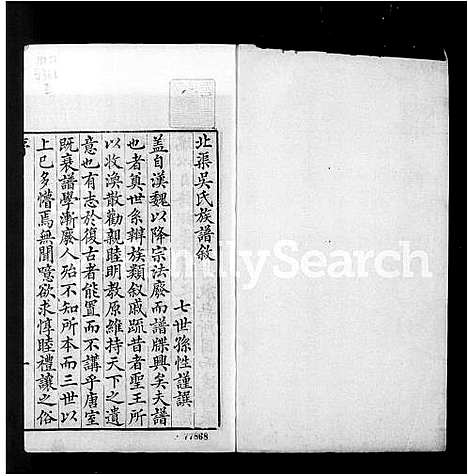 北渠吳氏族譜敘
七世孫性謹譔
蓋自漢魏以降宗法廢而譜牒興矣夫譜
也者奠世系辯族類敘戚疏昔者聖王所
以收渙散勸親睦明教原維持天下之遺
意也有志於復古者能置而不講乎唐室
既衰譜學漸廢人殆不知所本而三世以
上已多懵焉無聞噫欲求惇睦禮讓之俗
序
一
77868
FamilySearch